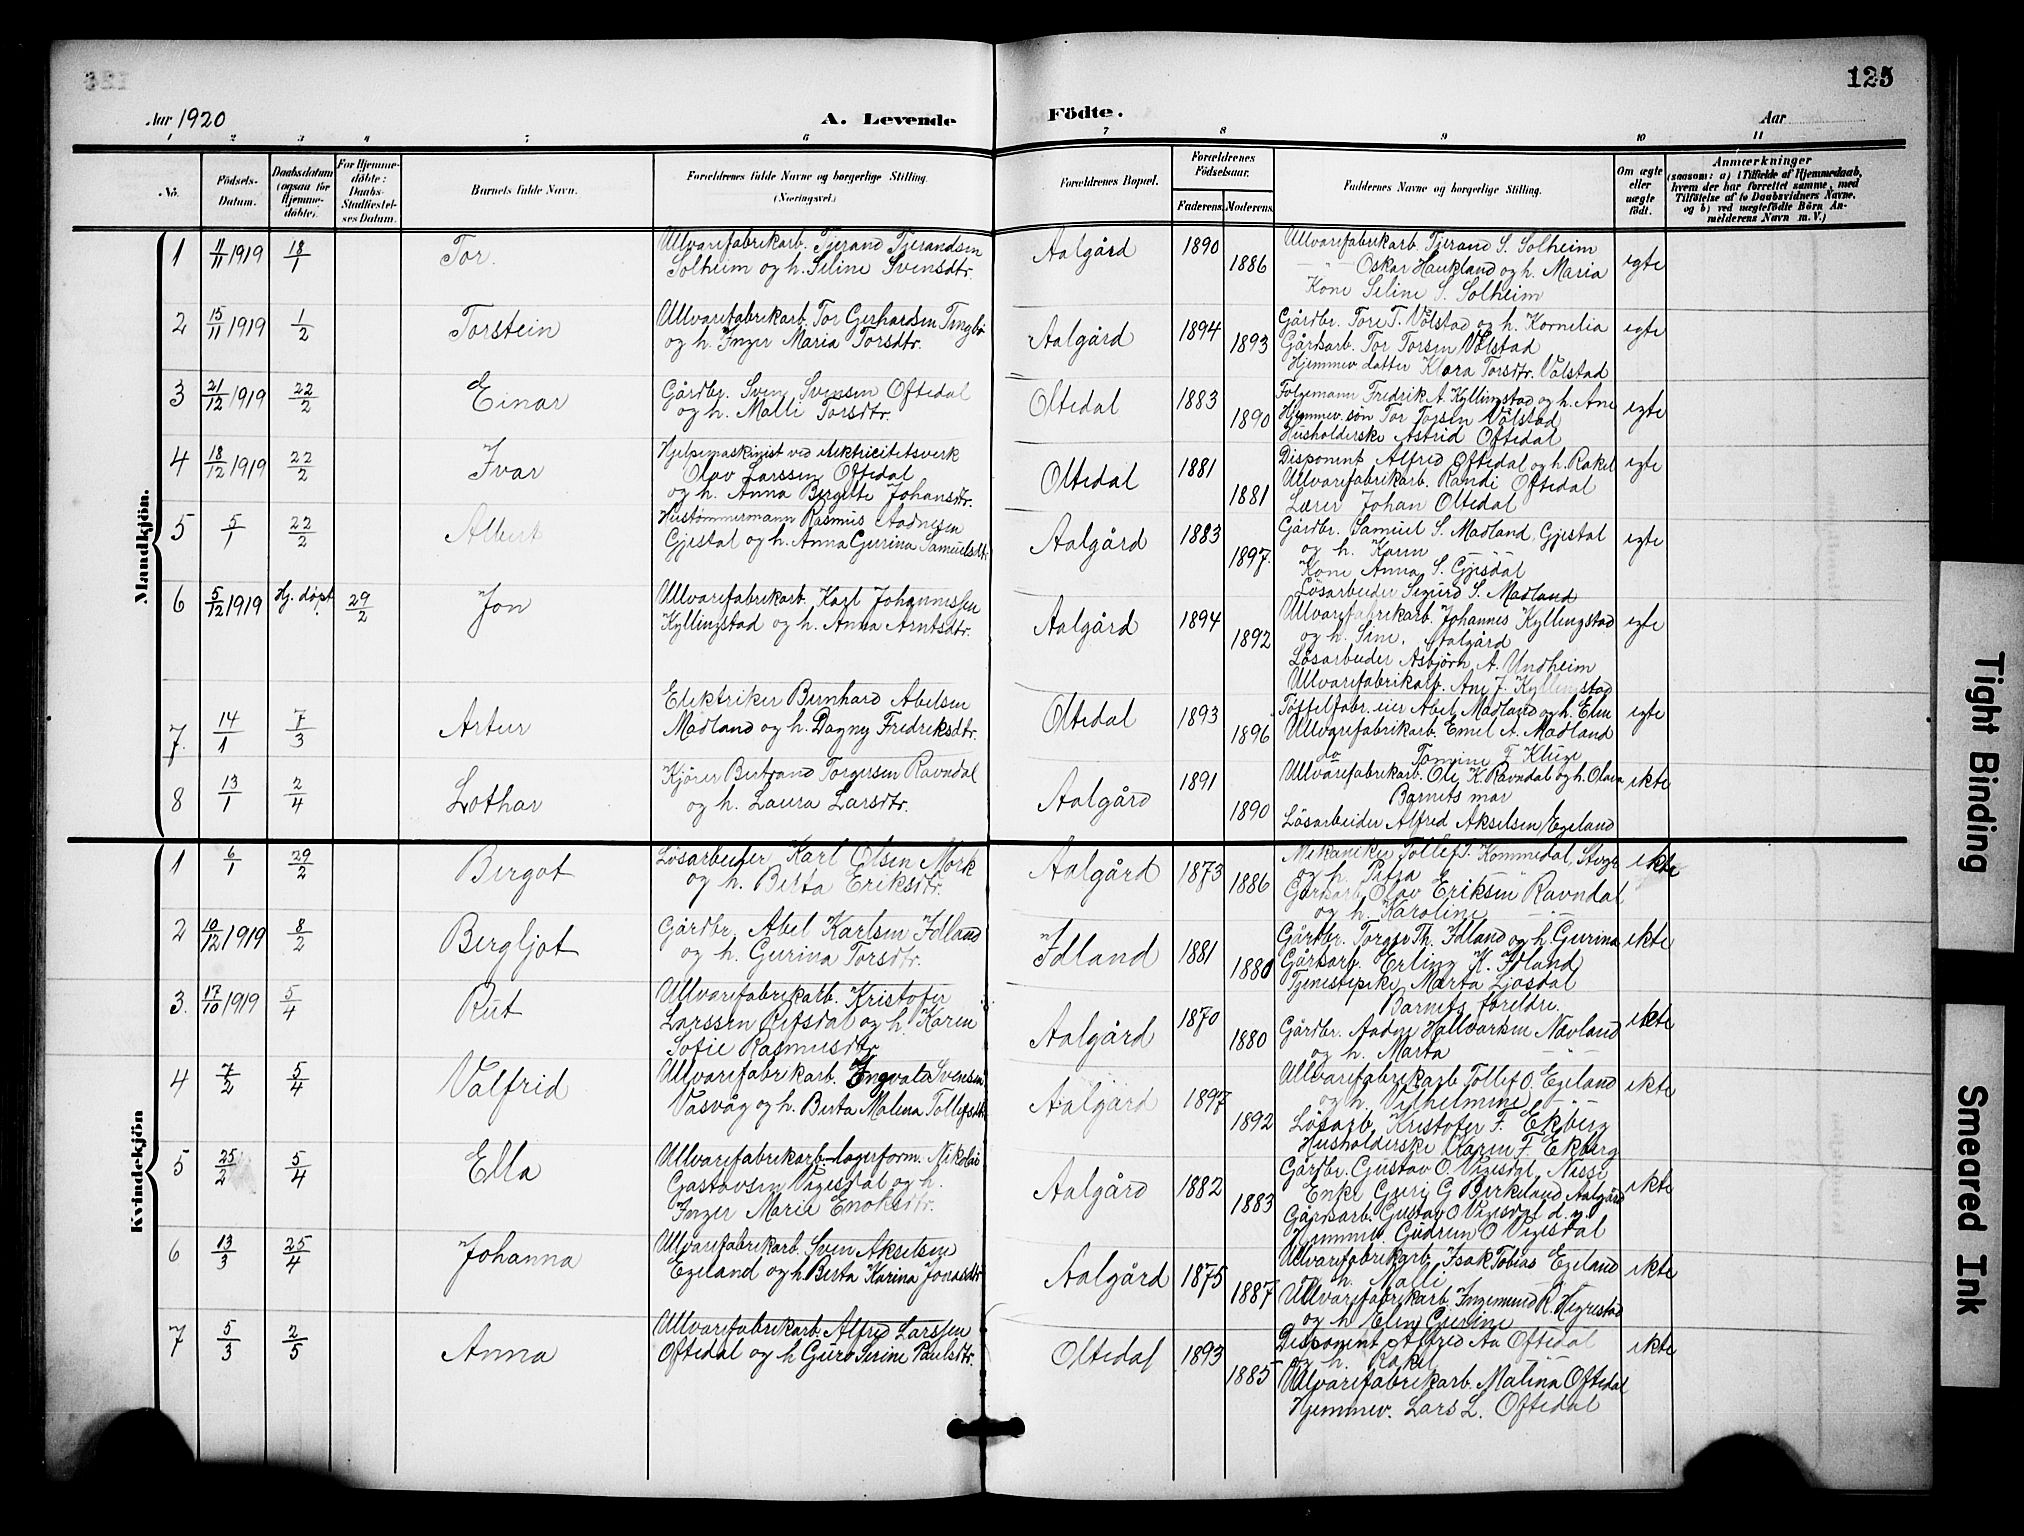 125
Aar 1920
A. Levende
Födte.
Aar
1 2 3 4 5 6 7 8 9 10 11
No.
Födsels-Datum.
Daabsdatum (ogsaa for Hjemme-döbte).
For Hjemme-döbte: Daabs-Stadfæstel-ses Datum.
Barnets fulde Navn.
Forældrenes fulde Navne og borgerlige Stilling. (Næringsvei.)
Forældrenes Bopæl.
Forældrenes Födselsaar.
Faderens. Moderens.
Faddernes Navne og borgerlige Stilling.
Om ægte eller uægte födt.
Anmærkninger
(saasom: a) i Tilfælde af Hjemmedaab, hvem der har forrettet samme, med Tilföielse af to Daabsvidners Navne, og b) ved uægtefödte Börn An-melderens Navn m. V.)
Mandkjön.
1 4/11 1919 18/1 Tor. Ullvarefabrikarb. Tjerand Tjerandsen
Solheim og h. Seline Svensdtr.
Aalgård 1890 1886
Ullvarefabrikarb. Tjerand S. Solheim
—"— Oskar Haukland og h. Maria
Kone Seline S. Solheim
egte
2 15/11 1919 1/2 Torstein Ullvarefabrikarb. Tor Gerhardsen Tengbö
og h. Inger Maria Torsdtr.
Aalgård 1894 1893
Gårdbr. Tore T. Vølstad og h. Kornelia
Gårdsarb. Tor Torsen Vølstad
Hjemmev. datter Klara Torsdtr. Vølstad
egte
3 21/12 1919 22/2 Einar Gårdbr. Sven Svensen Oftedal
og h. Malli Torsdtr.
Oltedal 1883 1890
Følgemann Fredrik A. Kyllingstad og h. Ane
Hjemmev. søn Tor Torsen Vølstad
Husholderske Astrid Oftedal
egte
4 18/12 1919 22/2 Ivar Hjelpemaskinist ved elektricitetsverk
Olav Larssen Oftedal
og h. Anna Bergitte Johansdtr.
Oltedal 1881 1881
Disponent Alfred Oftedal og h. Rakel
Ullvarefabrikarb. Randi Oftedal
Lærer Johan Oltedal
egte
5 5/1 22/2 Albert Hustømmermann Rasmus Aadnesen
Gjestal og h. Anna Gurina Samuelsdtr.
Aalgård 1883 1897.
Gårdbr. Samuel S. Madland, Gjestal
og h. Karen
Kone Anna S. Gjesdal
Løsarbeider Sigurd S. Madland
egte
6 5/12 1919 Hj. døpt. 29/2 Jon Ullvarefabrikarb. Karl Johannessen
Kyllingstad og h. Anna Arntsdtr.
Aalgård 1894 1892
Ullvarefabrikarb. Johannes Kyllingstad
og h. Sine, Aalgård
Løsarbeider Asbjørn A. Undheim
Ullvarefabrikarb. Ane J. Kyllingstad
egte
7. 14/1 7/3 Artur Elektriker Bernhard Abelsen
Madland og h. Dagny Fredriksdtr.
Oltedal 1893 1896
Tøffelfabr.eier Abel Madland og h. Elen
Ullvarefabrikarb. Emel A. Madland
do Tomine T. Kluge
egte
8 13/1 2/4 Lothar Kjører Bertrand Torgersen Ravndal
og h. Laura Larsdtr.
Aalgård 1891 1890
Ullvarefabrikarb. Ole K. Ravndal og h. Olava
Barnets mor
Løsarbeider Alfred Akselsen Egeland
ekte
Kvindekjön
1 6/1 29/2 Bergot Løsarbeider Karl Olsen Mork
og h. Berta Eriksdtr.
Aalgård 1873 1886
Mekaniker Tollef T. Kommedal,
og h. Petra
Gårdsarb. Olav Eriksen Ravndal
og h. Karoline —"—
ekte
2 10/12 1919 8/2 Bergljot Gårdbr. Abel Karlsen Idland
og h. Gurina Torsdtr.
Idland 1881 1880
Gårdbr. Torger Th. Idland og h. Gurina
Gårdsarb. Erling K. Idland
Tjenestepike Marta Ljosdal
ekte
3. 17/10 1919 5/4 Rut Ullvarefabrikarb. Kristofer
Larssen Refsdal og h. Karen
Sofie Rasmusdtr.
Aalgård 1870 1880
Barnets foreldre.
Gårdbr. Aadne Hallvarsen Nævland
og h. Marta —"—
ekte
4 7/2 5/4 Valfrid Ullvarefabrikarb. Ingvald Svensen
Vasvåg og h. Berta Malena Tollefsdtr.
Aalgård 1897 1892
Ullvarefabrikarb Tollef O. Egeland
og h. Vilhelmine —"—
Løsarb. Kristofer F. Ekberg
Husholderske Karen F. Ekberg
ekte
5 25/2 5/4 Ella Ullvarefabrikarb. lagerform. Nikolai
Gustavsen Vigesdal og h.
Inger Marie Enoksdtr.
Aalgård 1882 1883
Gårdbr. Gustav O. Vigesdal,
Enke Guri G Birkeland Aalgård
Gårdsarb. Gustav O Vigesdal d. y.
Hjemmev. Gudrun O Vigesdal
ekte
6 13/3 25/4 Johanna Ullvarefabrikarb. Sven Akselsen
Egeland og h. Berta Karina Jonasdtr.
Aalgård 1875 1887
Ullvarefabrikarb. Isak Tobias Egeland
og h. Malli —"—
Ullvarefabrikarb. Ingemund R. Hegrestad
og h. Elen Gurine
ekte
7 5/3 2/5 Anna Ullvarefabrikarb. Alfred Larssen
Oftedal og h Guro Serine Paulsdtr.
Oltedal 1893 1885
Disponent Alfred Aa Oftedal
og h. Rakel —"—
Ullvarefabrikarb. Malina Oftedal
Hjemmev. Lars L. Oftedal
ekte
Tight Binding
Smeared Ink